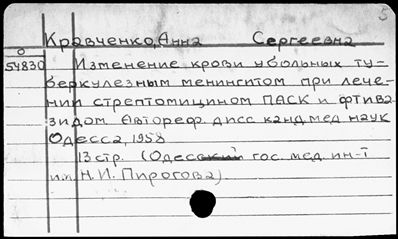 5
Кравченко, Анна Сергеевна
0
54830 Изменение крови убольных ту-
беркулезным менингитом при лече-
нии стрептомицином ПАСК и фтива
зидом Автореф. дисс канд. мед наук
Одесса, 1958
13 стр. (Одесский гос. мед. ин-т
им. Н. И. Пирогова).